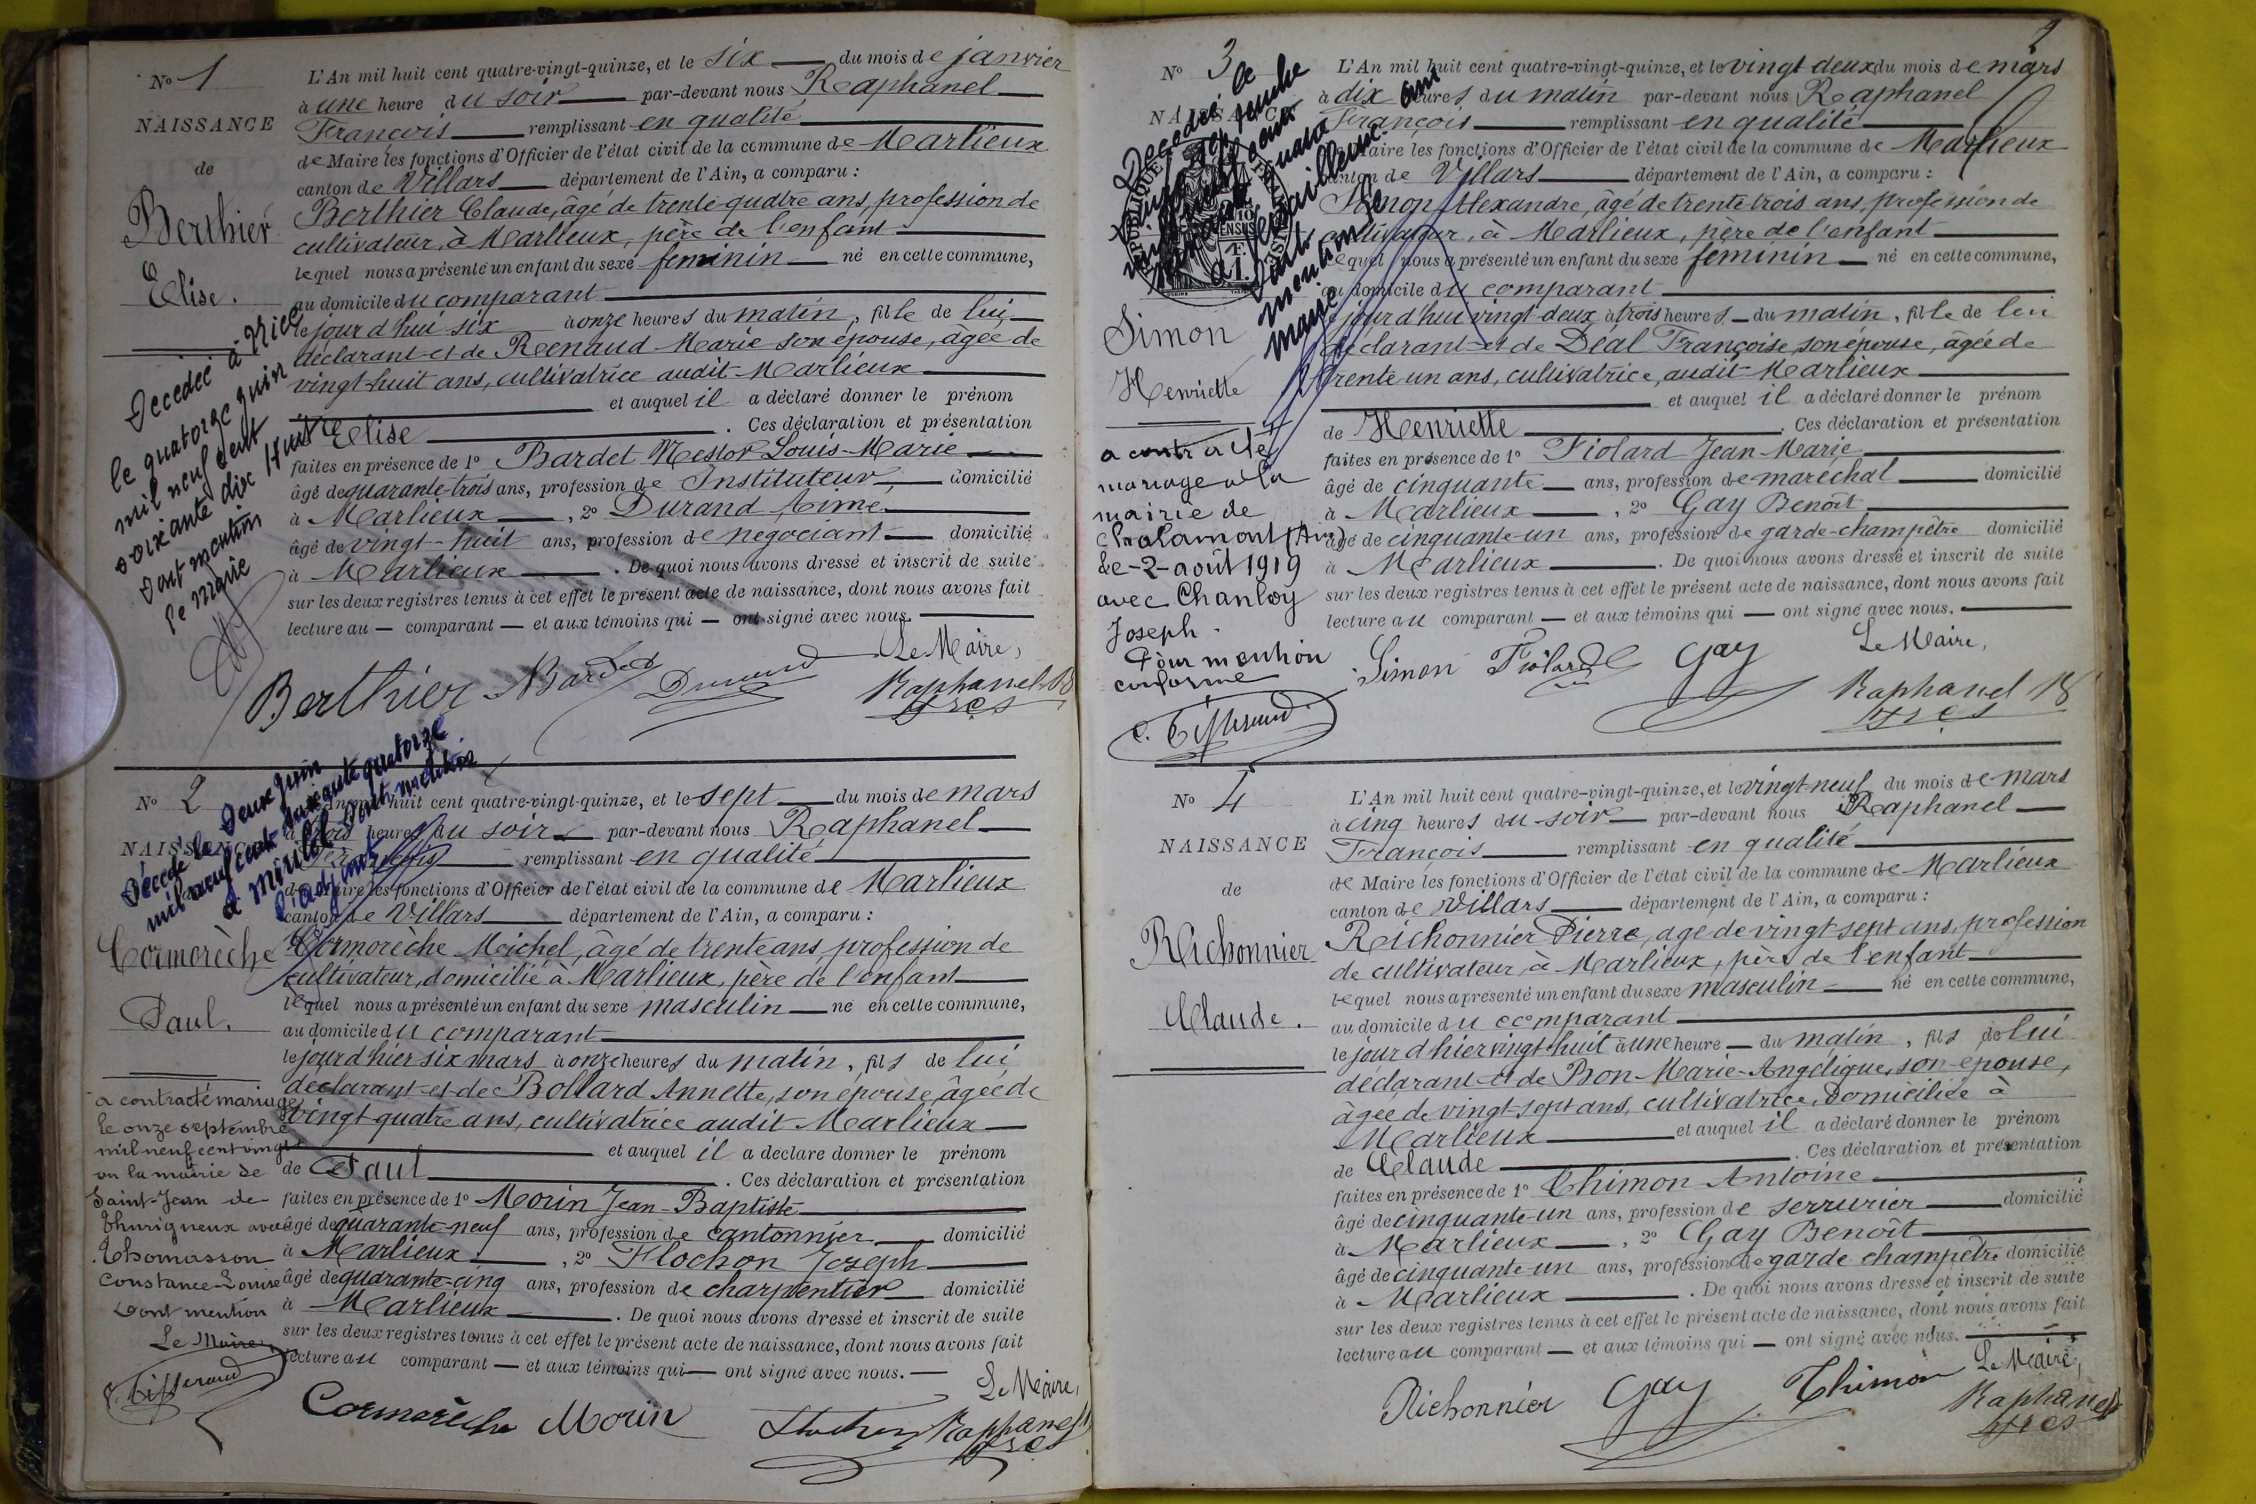 No 1
NAISSANCE
de
Berthier
Elise.
L'An mil huit cent quatre-vingt-quinze, et le six du mois de janvier
à une heure du soir par-devant nous Raphanel
François remplissant en qualité
de Maire les fonctions d'Officier de l'état civil de la commune de Marlieux
canton de Villars département de l'Ain, a comparu :
Berthier Claude, âgé de trente-quatre ans, profession de
cultivateur, à Marlieux, père de l'enfant
lequel nous a présenté un enfant du sexe feminin né en cette commune,
au domicile du comparant
le jourd'hui six à onze heures du matin, fille de lui
déclarant et de Renaud Marie son épouse, âgée de
vingt-huit ans, cultivatrice audit Marlieux
et auquel il a déclaré donner le prénom
Elise . Ces déclaration et présentation
faites en présence de 1° Bardet Nestor Louis-Marie
âgé de quarante-trois ans, profession de Instituteur, domicilié
à Marlieux , 2° Durand Aimé
âgé de vingt-huit ans, profession de negociant domicilié
à Marlieux . De quoi nous avons dressé et inscrit de suite
sur les deux registres tenus à cet effet le présent acte de naissance, dont nous avons fait
lecture au comparant et aux témoins qui ont signé avec nous.
Le Maire,
Berthier Bardet Durand Raphanel
Décédée à Nice
le quatorze juin
mil neuf cent
soixante dix huit
dont mention
le Maire
No 2
NAISSANCE
Cormorèche
Paul.
L'An mil huit cent quatre-vingt-quinze, et le sept du mois de mars
à trois heures du soir par-devant nous Raphanel
François remplissant en qualité
de Maire les fonctions d'Officier de l'état civil de la commune de Marlieux
canton de Villars département de l'Ain, a comparu :
Cormorèche Michel, âgé de trente ans, profession de
cultivateur, domicilié à Marlieux, père de l'enfant
lequel nous a présenté un enfant du sexe masculin né en cette commune,
au domicile du comparant
le jourd'hier six mars à onze heures du matin, fils de lui
déclarant et de Bollard Annette, son épouse, âgée de
vingt-quatre ans, cultivatrice audit Marlieux
et auquel il a déclaré donner le prénom
de Paul . Ces déclaration et présentation
faites en présence de 1° Morin Jean-Baptiste
âgé de quarante-neuf ans, profession de cantonnier domicilié
à Marlieux , 2° Flochon Joseph
âgé de quarante-cinq ans, profession de charpentier domicilié
à Marlieux . De quoi nous avons dressé et inscrit de suite
sur les deux registres tenus à cet effet le présent acte de naissance, dont nous avons fait
lecture au comparant et aux témoins qui ont signé avec nous.
Le Maire,
Cormorèche Morin Flochon Raphanel
Décédé le deux juin
mil neuf cent soixante quatorze
à Miribel dont mention
l'adjoint
a contracté mariage
le onze septembre
mil neuf cent vingt
en la mairie de
Saint-Jean de
Thurigneux avec
Thomasson
Constance-Louise
Dont mention
Le Maire,
Tisserand
2
No 3
NAISSANCE
Simon
Henriette
L'An mil huit cent quatre-vingt-quinze, et le vingt deux du mois de mars
à dix heures du matin par-devant nous Raphanel
François remplissant en qualité
Maire les fonctions d'Officier de l'état civil de la commune de Marlieux
canton de Villars département de l'Ain, a comparu :
Simon Alexandre, âgé de trente trois ans, profession de
cultivateur, à Marlieux, père de l'enfant
lequel nous a présenté un enfant du sexe féminin né en cette commune,
au domicile du comparant
le jourd'hui vingt-deux à trois heures du matin, fille de lui
déclarant et de Déal Françoise, son épouse, âgée de
trente un ans, cultivatrice, audit Marlieux
et auquel il a déclaré donner le prénom
de Henriette . Ces déclaration et présentation
faites en présence de 1° Fiolard Jean-Marie
âgé de cinquante ans, profession de maréchal domicilié
à Marlieux , 2° Gay Benoît
âgé de cinquante-un ans, profession de garde-champêtre domicilié
à Marlieux . De quoi nous avons dressé et inscrit de suite
sur les deux registres tenus à cet effet le présent acte de naissance, dont nous avons fait
lecture au comparant et aux témoins qui ont signé avec nous.
Le Maire,
Simon Fiolard Gay Raphanel
Décédé le
mil neuf cent
à
dont
mention le
maire
a contracté
mariage à la
mairie de
Chalamont (Ain)
le 2 août 1919
avec Chanloy
Joseph.
Pour mention
conforme
Tisserand
No 4
NAISSANCE
de
Richonnier
Claude.
L'An mil huit cent quatre-vingt-quinze, et le vingt-neuf du mois de mars
à cinq heures du soir par-devant nous Raphanel
François remplissant en qualité
de Maire les fonctions d'Officier de l'état civil de la commune de Marlieux
canton de Villars département de l'Ain, a comparu :
Richonnier Pierre, âgé de vingt sept ans, profession
de cultivateur, à Marlieux, père de l'enfant
lequel nous a présenté un enfant du sexe masculin né en cette commune,
au domicile du comparant
le jourd'hier vingt-huit à une heure du matin, fils de lui
déclarant et de Bon Marie-Angélique, son épouse,
âgée de vingt-sept ans, cultivatrice, domiciliée à
Marlieux et auquel il a déclaré donner le prénom
de Claude . Ces déclaration et présentation
faites en présence de 1° Thimon Antoine
âgé de cinquante-un ans, profession de serrurier domicilié
à Marlieux , 2° Gay Benoît
âgé de cinquante-un ans, profession de garde champêtre domicilié
à Marlieux . De quoi nous avons dressé et inscrit de suite
sur les deux registres tenus à cet effet le présent acte de naissance, dont nous avons fait
lecture au comparant et aux témoins qui ont signé avec nous.
Le Maire,
Richonnier Gay Thimon Raphanel